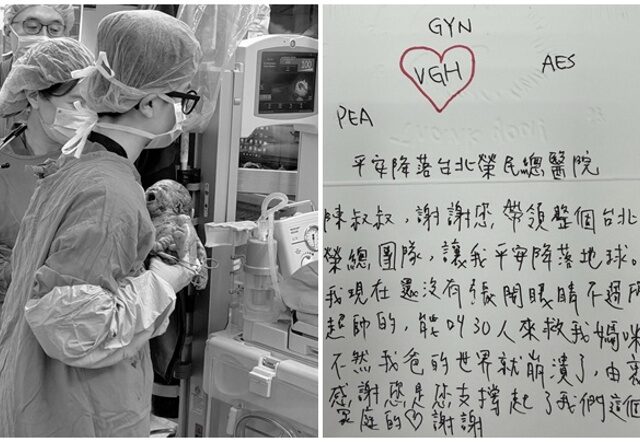 GYN
VGH
AES
PEA
平安降落台北榮民總醫院
陳叔叔，謝謝您，帶領整個台北
榮總團隊，讓我平安降落地球。
我現在還沒有張開眼睛不過
超帥的，能叫30人來救我媽咪
不然我爸的世界就崩潰了，由衷
感謝您是您支撐起了我們這個
家庭的♡謝謝
100